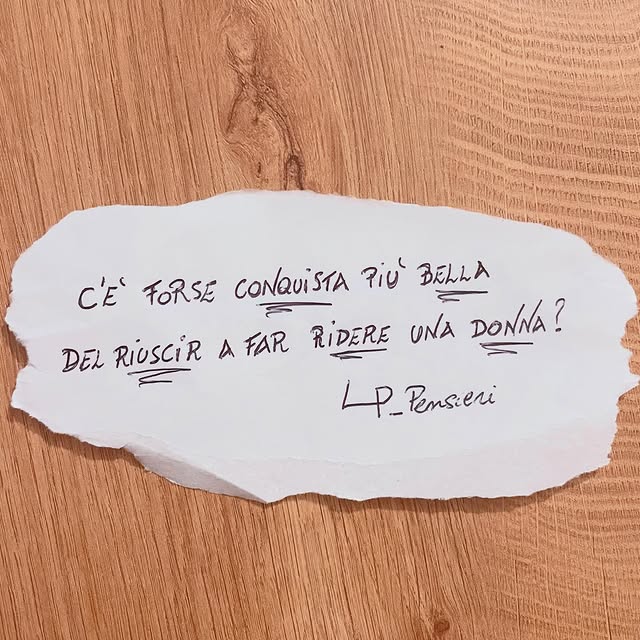 C'E' FORSE CONQUISTA PIU' BELLA
DEL RIUSCIR A FAR RIDERE UNA DONNA?
LP_Pensieri